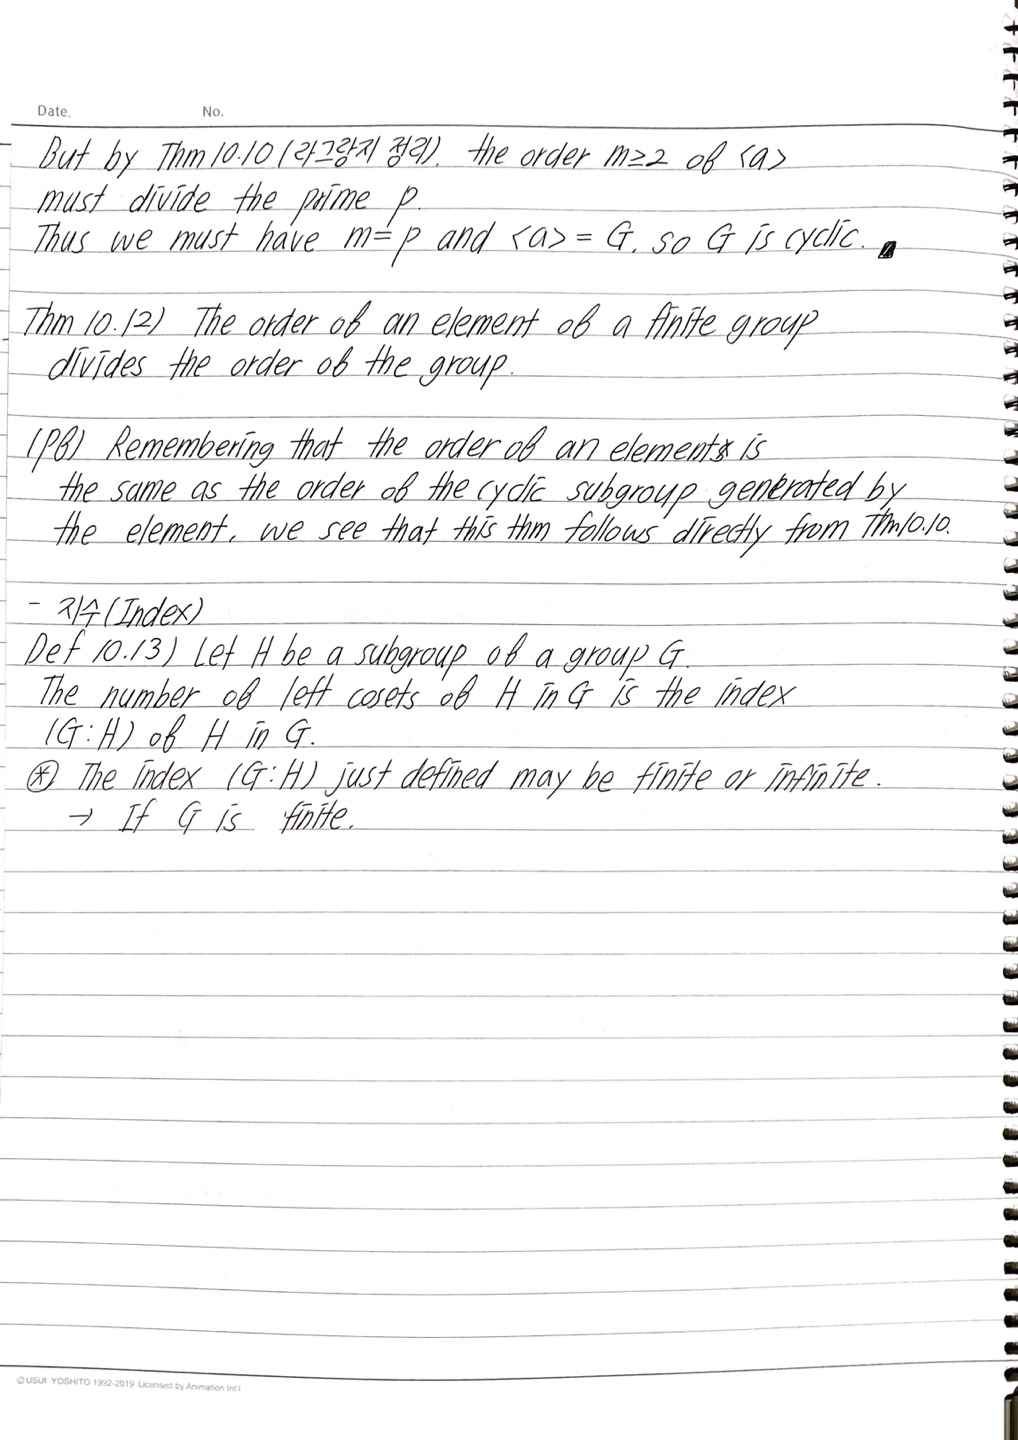 Date. No.
But by Thm 10.10 (라그랑지 정리). the order m≥2 of <a>
must divide the prime p.
Thus we must have m=p and <a> = G, so G is cyclic.
Thm 10.12) The order of an element of a finite group
divides the order of the group.
(pf) Remembering that the order of an element is
the same as the order of the cyclic subgroup generated by
the element, we see that this thm follows directly from Thm10.10.
- 지수(Index)
Def 10.13) Let H be a subgroup of a group G.
The number of left cosets of H in G is the index
(G:H) of H in G.
⊛ The index (G:H) just defined may be finite or infinite.
→ If G is finite.
©USUI YOSHITO 1992-2019 Licensed by Animation Int'l